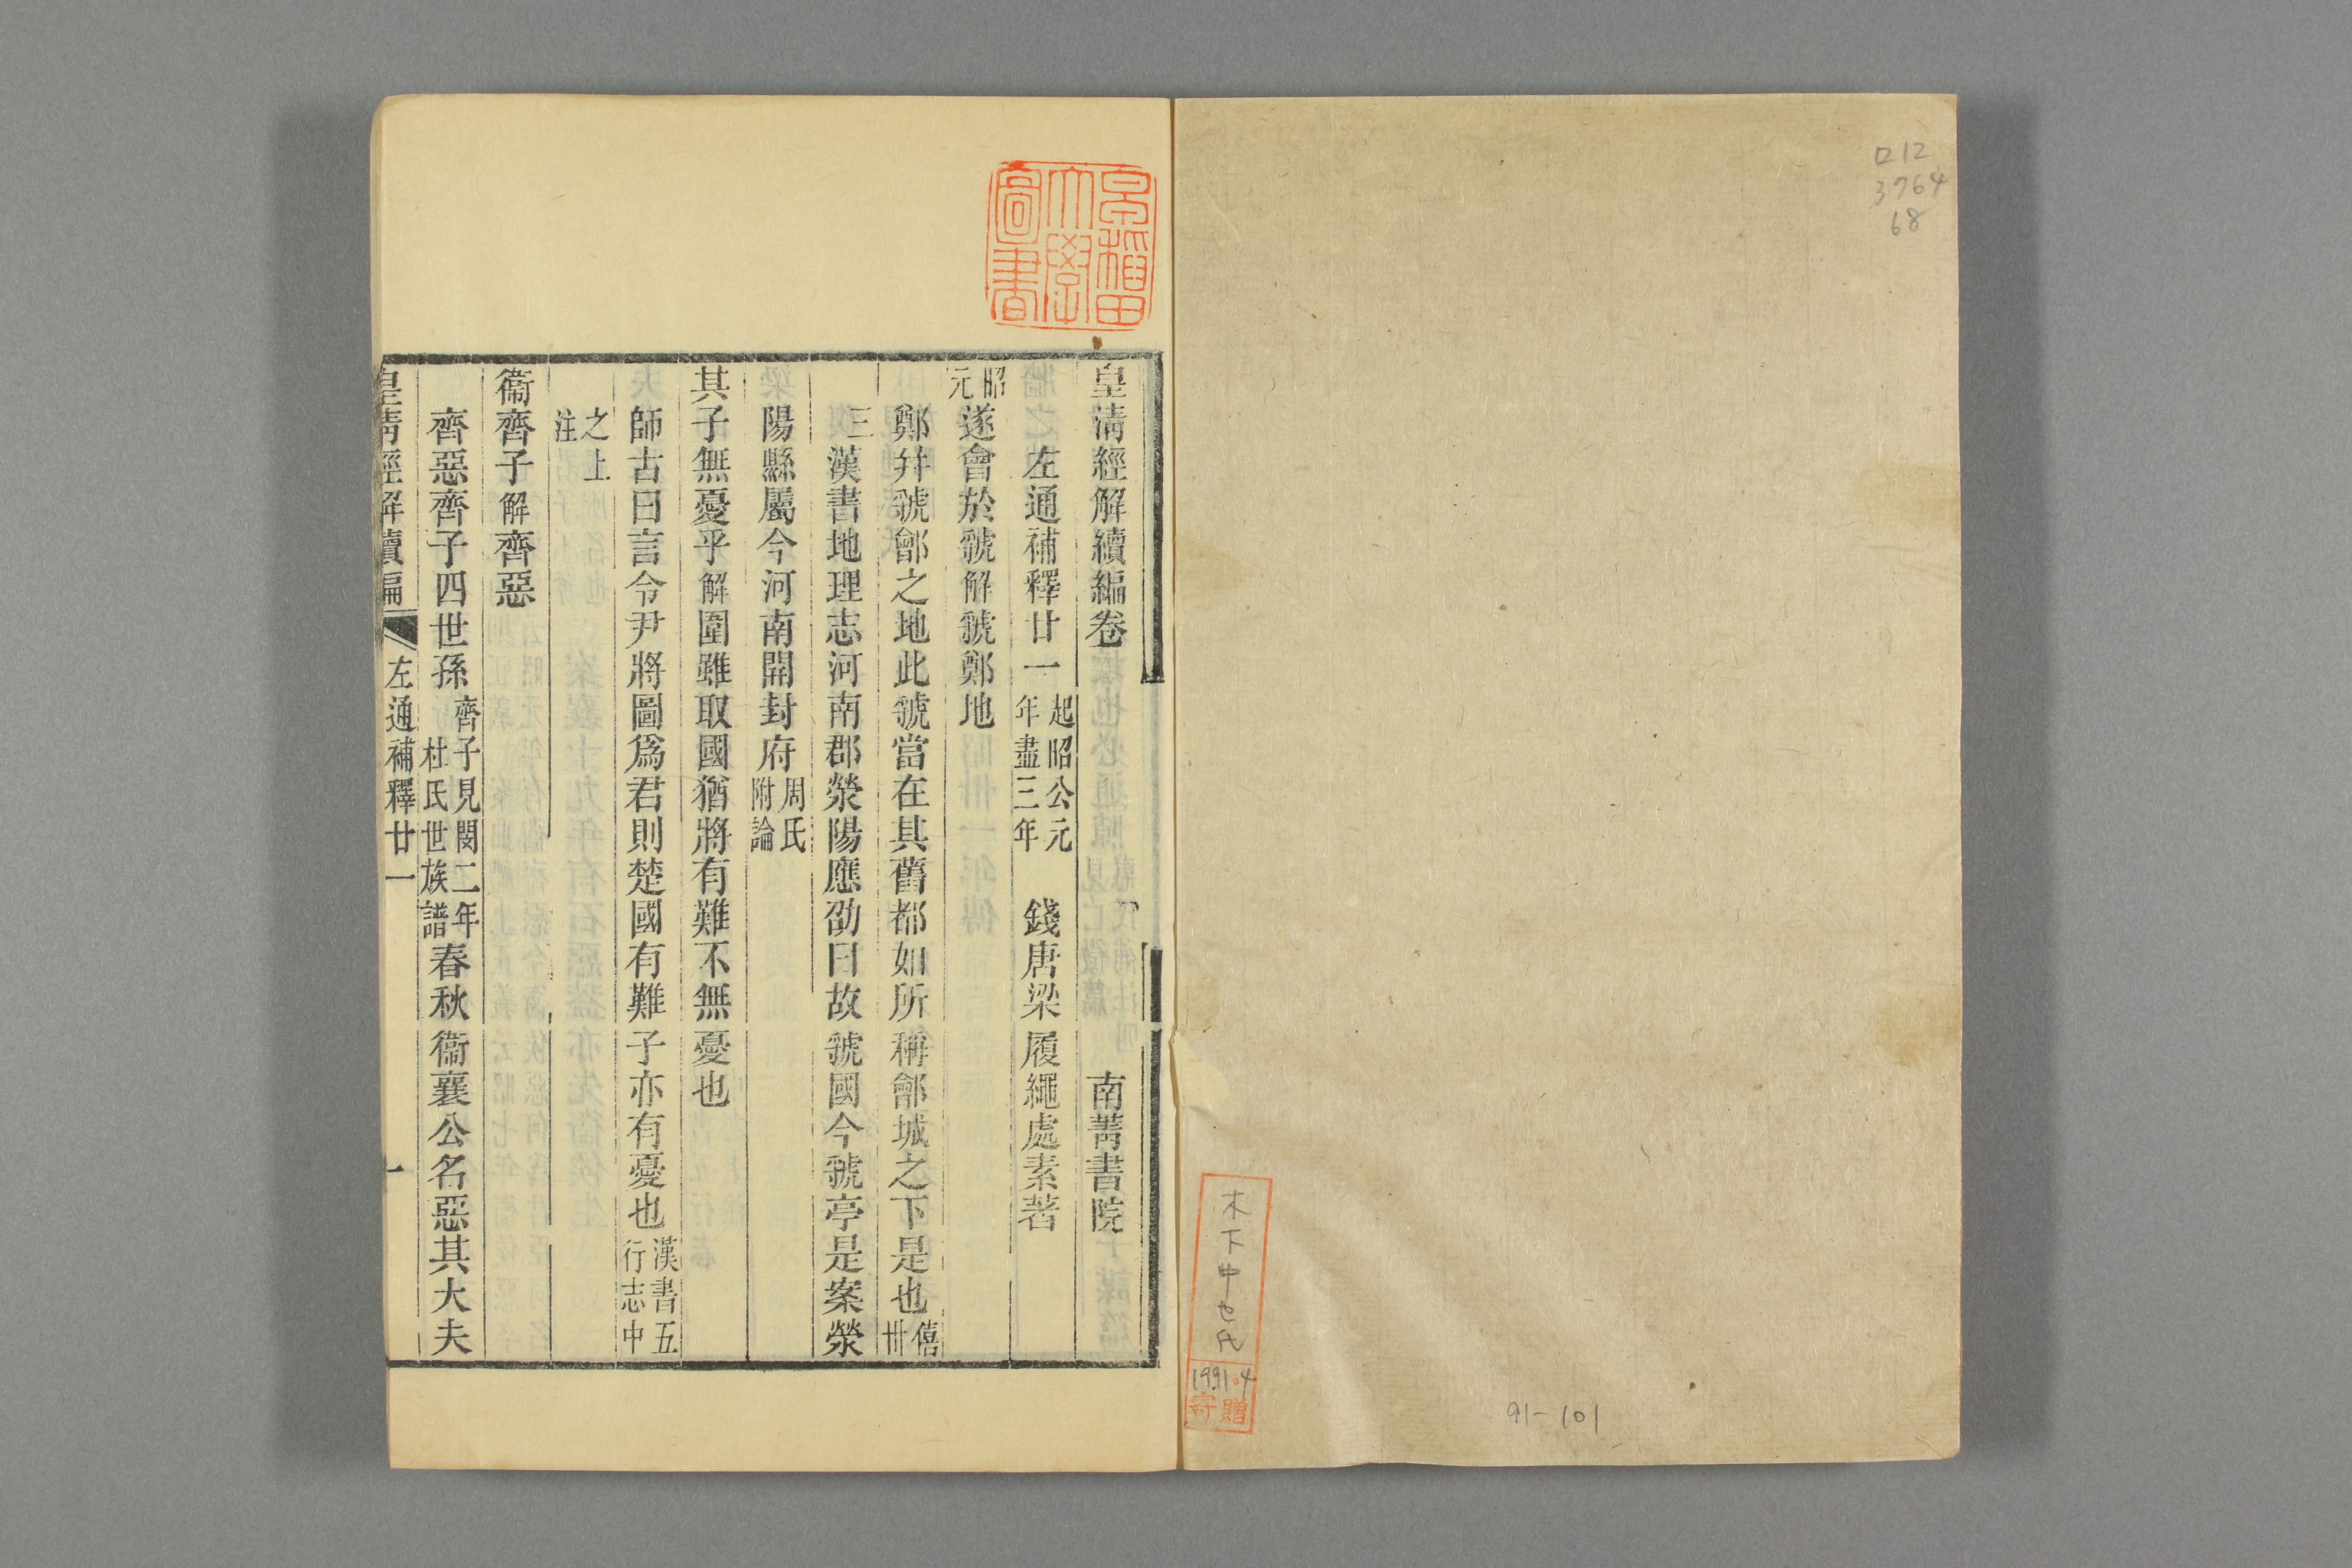 ロ12
3764
68
木下中也氏
1991.4
寄贈
91-101
早稲田
大學
圖書
皇清經解續編卷 南菁書院
左通補釋廿一 起昭公元年盡三年 錢唐梁履繩處素著
昭元 遂會於虢解虢鄭地
鄭并虢鄶之地此虢當在其舊都如所稱鄶城之下是也 僖卅
三 漢書地理志河南郡滎陽應劭曰故虢國今虢亭是案滎
陽縣屬今河南開封府 周氏附論
其子無憂乎解圍雖取國猶將有難不無憂也
師古曰言令尹將圖爲君則楚國有難子亦有憂也 漢書五行志中
之上注
衞齊子解齊惡
齊惡齊子四世孫 齊子見閔二年杜氏世族譜 春秋衞襄公名惡其大夫
皇清經解續編 左通補釋廿一 一